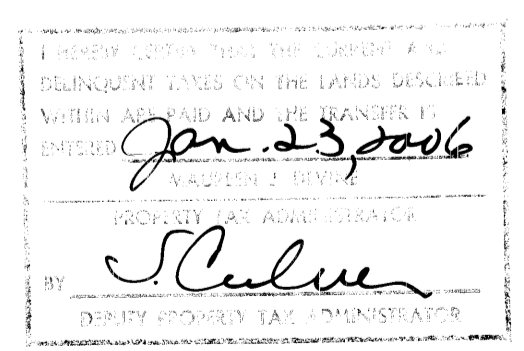 I HEREBY CERTIFY THAT THE CURRENT AND
DELINQUENT TAXES ON THE LANDS DESCRIBED
WITHIN ARE PAID AND THE TRANSFER IS
ENTERED Jan. 23, 2006
MAUREEN J. DEVINE
PROPERTY TAX ADMINISTRATOR
BY S. Culver
DEPUTY PROPERTY TAX ADMINISTRATOR